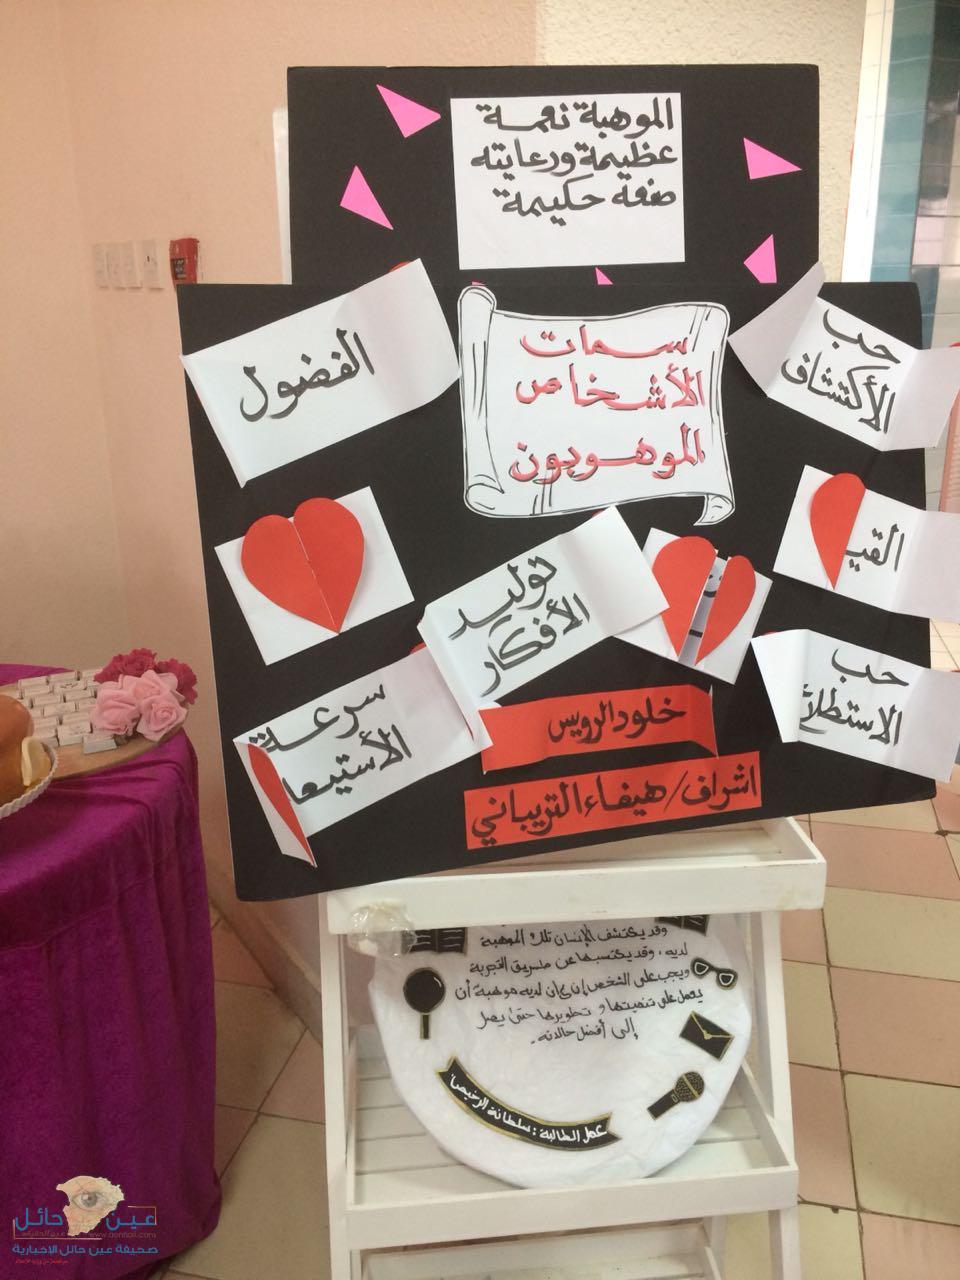 الموهبة نعمة
عظيمة ورعايته
صنعه حكيمة
سمات
الأشخاص
الموهوبون
حب
الأكتشاف
الفضول
القيـ
توليد
الأفكار
حب
الاستطلاع
سرعة
الأستيعا
خلود الرويس
اشراف/هيفاء التريباني
وقد يكتشف الإنسان تلك الموهبة
لديه، وقد يكتسبها عن طريق التجربة
ويجب على الشخص إن كان لديه موهبة أن
يعمل على تنميتها و تطويرها حتى يصل
إلى أفضل حالاته.
عمل الطالبة: سلطانة الرخيص
عين حائل
www.aenhail.com
صحيفة عين حائل الإخبارية